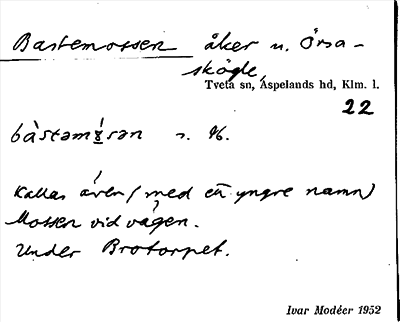 Bastemossen åker n. Örsa-
skögle,
Tveta sn, Aspelands hd, Klm. l.
22
bàstamɤ́sən s. /6.
Kallas även (med ett yngre namn)
Mossen vid vägen.
Under Brotorpet.
Ivar Modéer 1952